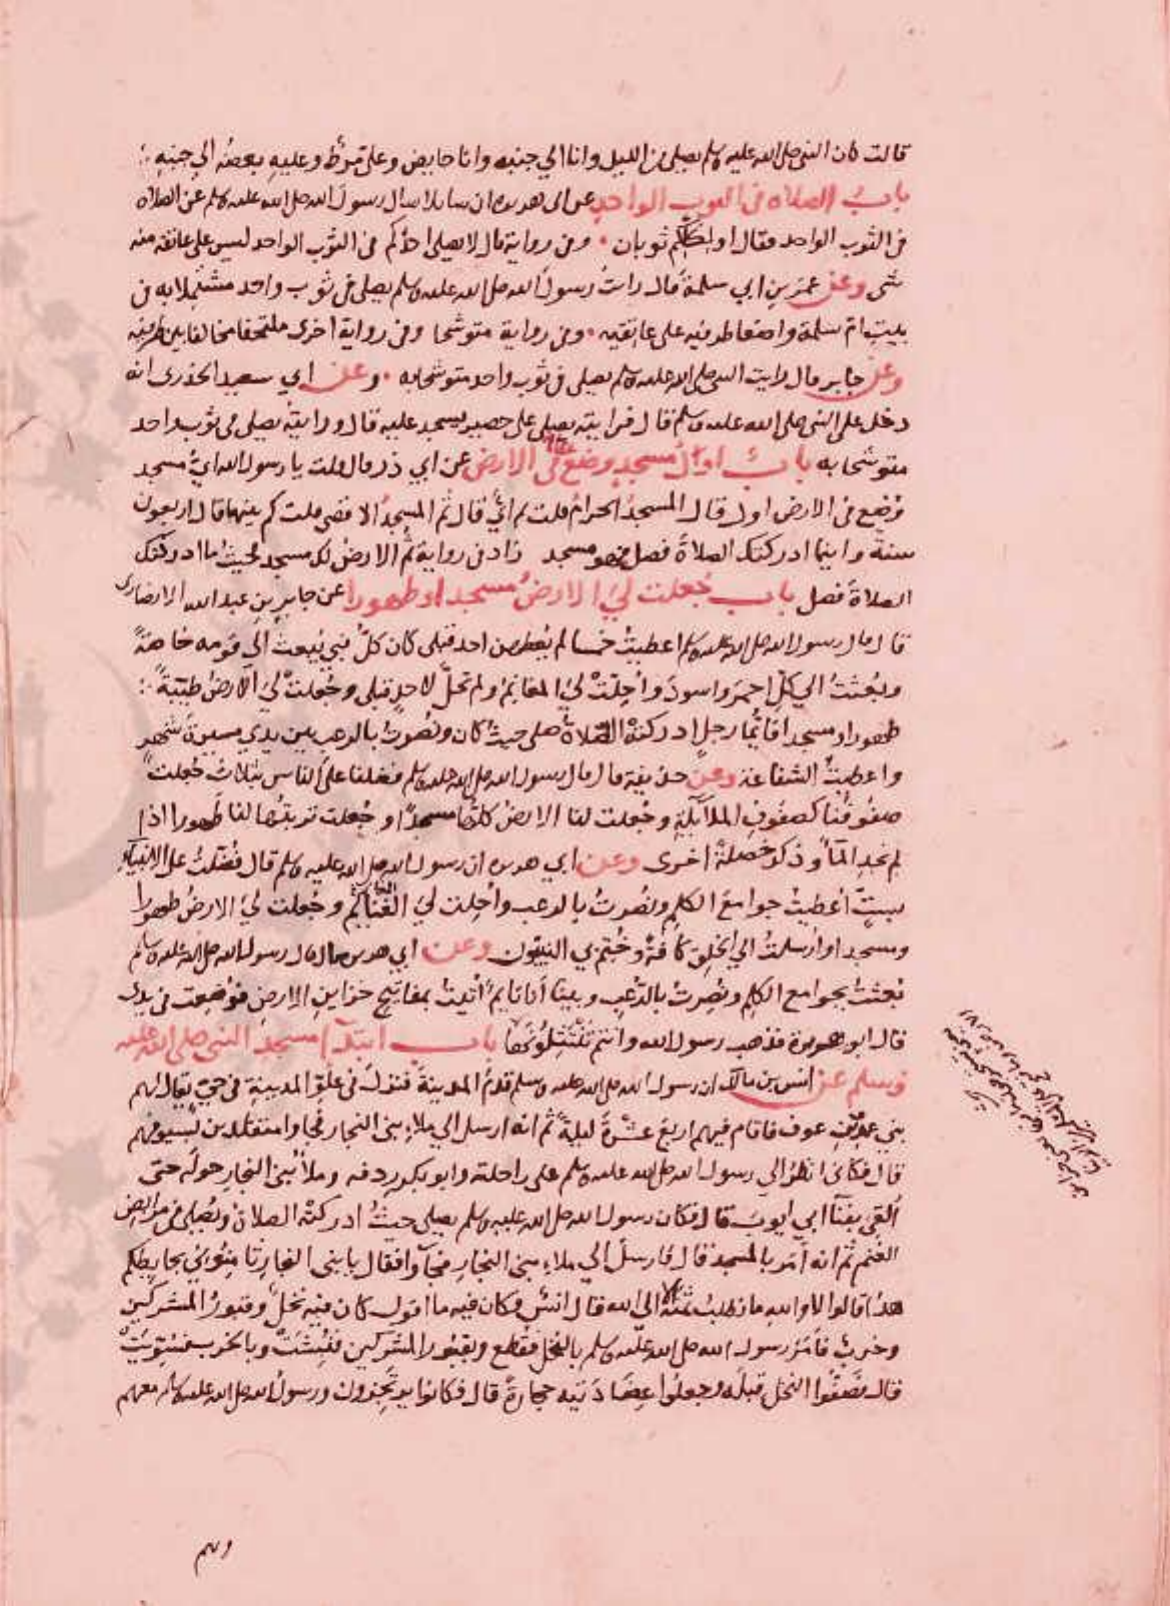 قالت كان النبى صلى الله عليه وسلم يصلى من الليل وانا الي جنبه وانا حايض وعلى مرط وعليه بعضه الي جنبه
باب الصلاه فى الثوب الواحد عن ابى هريره ان سايلا سال رسول الله صلى الله عليه وسلم عن الصلاه
فى الثوب الواحد فقال اولكلكم ثوبان وفى رواية قال لا يصلى احدكم فى الثوب الواحد ليس على عاتقه منه
شى وعن عمر بن ابي سلمة قال رايت رسول الله صلى الله عليه وسلم يصلى فى ثوب واحد مشتملا به فى
بيت ام سلمة واضعا طرفيه على عاتقيه وفى رواية متوشحا وفى رواية اخرى ملتحفا مخالفا بين طرفيه
وعن جابر قال رايت النبى صلى الله عليه وسلم يصلى فى ثوب واحد متوشحا به وعن ابي سعيد الخدرى انه
دخل على النبى صلى الله عليه وسلم قال فرايته يصلى على حصير يسجد عليه قال ورايته يصلى فى ثوب واحد
متوشحا به باب اول مسجد وضع فى الارض عن ابي ذر قال قلت يا رسول الله اي مسجد
وضع فى الارض اول قال المسجد الحرام قلت ثم اي قال ثم المسجد الاقصى قلت كم بينهما قال اربعون
سنة واينما ادركتك الصلاة فصل فهو مسجد زاد فى رواية ثم الارض لك مسجد فحيث ما ادركتك
الصلاة فصل باب جعلت لي الارض مسجدا وطهورا عن جابر بن عبد الله الانصارى
قال قال رسول الله صلى الله عليه وسلم اعطيت خمسا لم يعطهن احد قبلى كان كل نبي يبعث الى قومه خاصة
وبعثت الي كل احمر واسود واحلت لي المغانم ولم تحل لاحد قبلى وجعلت لي الارض طيبة
طهورا ومسجدا فايما رجل ادركته الصلاة صلى حيث كان ونصرت بالرعب بين يدي مسيرة شهر
واعطيت الشفاعة وعن حذيفة قال قال رسول الله صلى الله عليه وسلم فضلنا على الناس بثلاث جعلت
صفوفنا كصفوف الملآئكة وجعلت لنا الارض كلها مسجدا وجعلت تربتها لنا طهورا اذا
لم نجد المآ وذكر خصلة اخرى وعن ابي هريره ان رسول الله صلى الله عليه وسلم قال فضلت على الانبياء
بست اعطيت جوامع الكلم ونصرت بالرعب واحلت لي الغنائم وجعلت لي الارض طهورا
ومسجدا وارسلت الي الخلق كافة وختم بي النبيون وعن ابي هريره قال قال رسول الله صلى الله عليه وسلم
بعثت بجوامع الكلم ونصرت بالرعب وبينا انا نايم اتيت بمفاتيح خزاين الارض فوضعت فى يدى
قال ابو هريرة فذهب رسول الله وانتم تنتثلونها باب ابتدآ مسجد النبى صلى الله عليه
وسلم عن انس بن مالك ان رسول الله صلى الله عليه وسلم قدم المدينة فنزل فى علو المدينة فى حي يقال لهم
بني عمرو بن عوف فاقام فيهم اربع عشرة ليلة ثم انه ارسل الي ملاء بنى النجار فجاوا متقلدين بسيوفهم
قال فكانى انظر الي رسول الله صلى الله عليه وسلم على راحلته وابو بكر ردفه وملأ بنى النجار حوله حتى
القى بفنآ ابي ايوب قال فكان رسول الله صلى الله عليه وسلم يصلى حيث ادركته الصلاة ويصلى فى مرابض
الغنم ثم انه امر بالمسجد قال فارسل الي ملاء بنى النجار فجآوا فقال يا بنى النجار ثامنونى بحايطكم
هذا قالوا لا والله ما نطلب ثمنه الا الى الله قال انس فكان فيه ما اقول كان فيه نخل وقبور المشركين
وخرب فامر رسول الله صلى الله عليه وسلم بالنخل فقطع وبقبور المشركين فنبشت وبالخرب فسويت
قال فصفوا النخل قبله وجعلوا عضادتيه حجارة قال فكانوا يرتجزون ورسول الله صلى الله عليه وسلم معهم
وهم